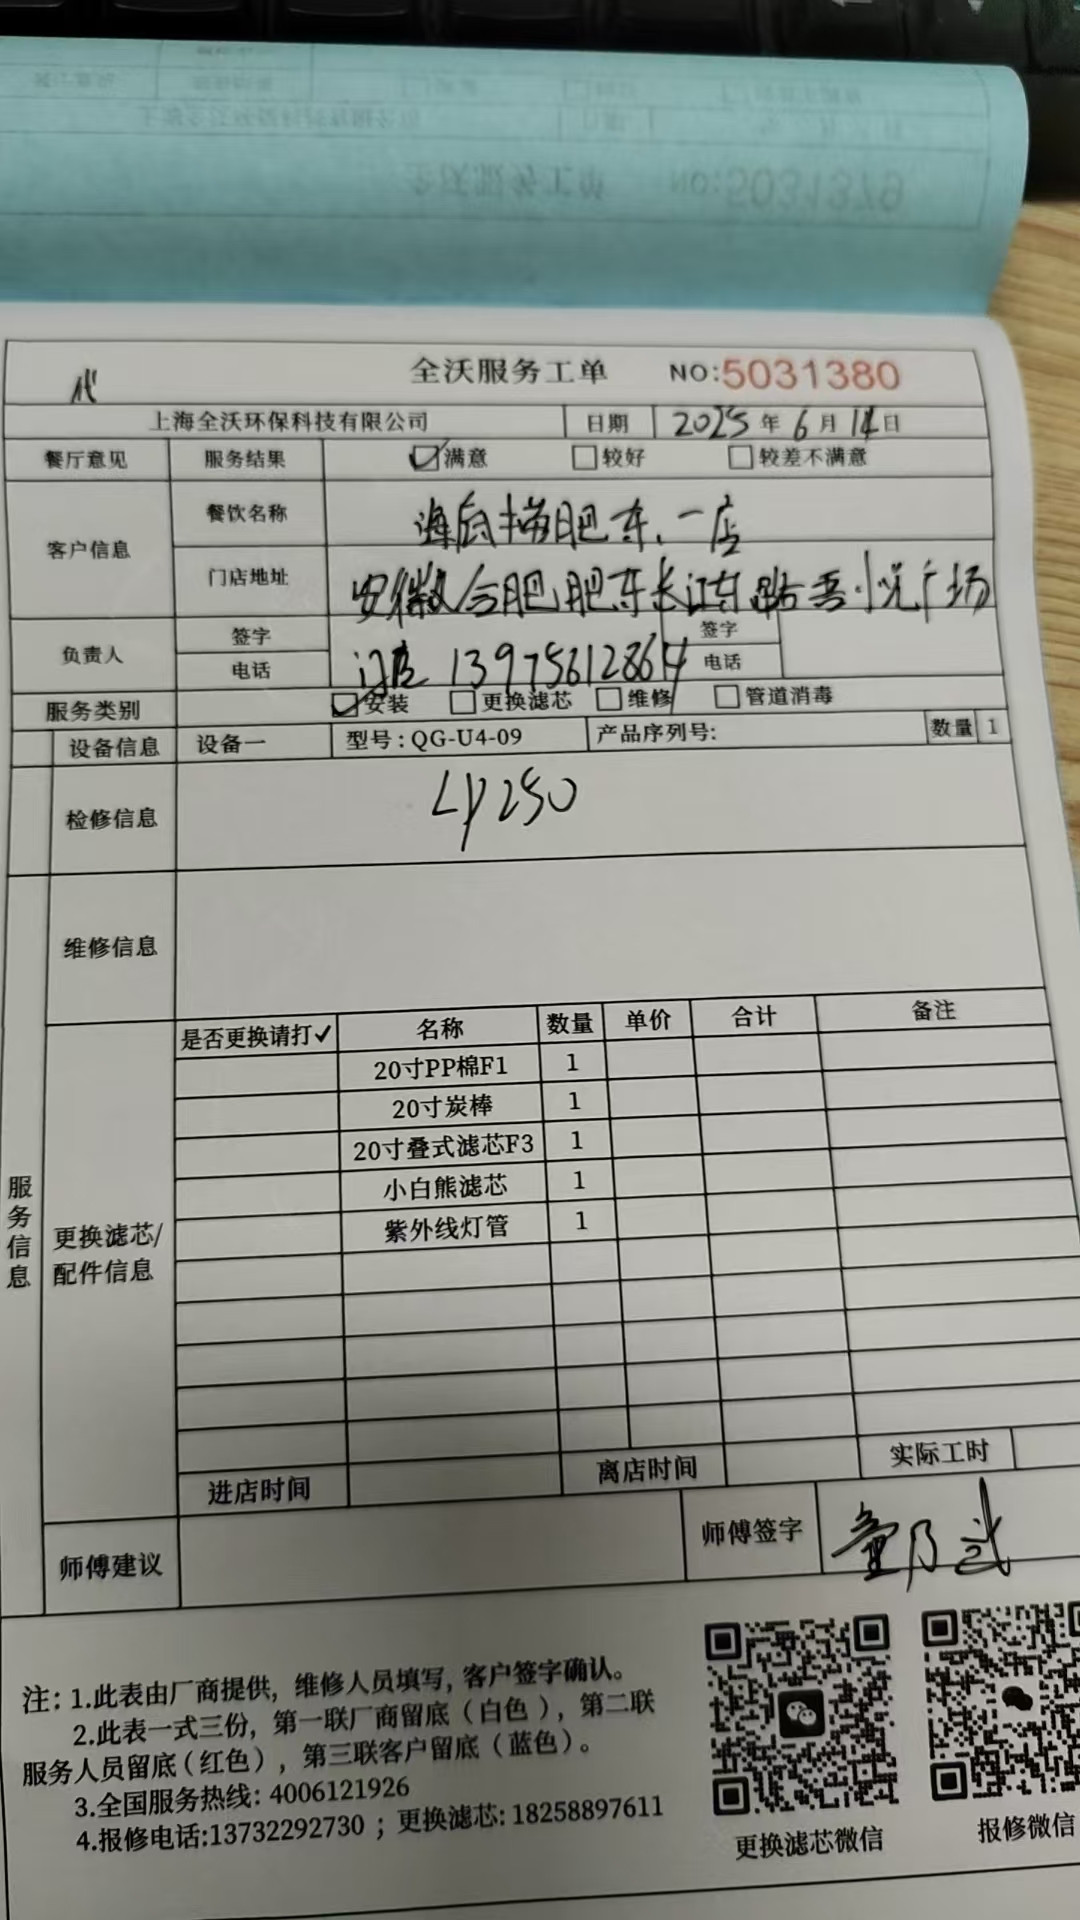 全沃服务工单 NO:5031379
代 全沃服务工单 NO:5031380
上海全沃环保科技有限公司 日期 2025年6月14日
餐厅意见 服务结果 ☑满意 □较好 □较差不满意
客户信息 餐饮名称 海底捞肥东一店
门店地址 安徽合肥肥东长江东路吾小悦广场
负责人 签字 签字
电话 门店 13975612864 电话
服务类别 ☑安装 □更换滤芯 □维修 □管道消毒
设备信息 设备一 型号:QG-U4-09 产品序列号: 数量 1
检修信息 LP250
维修信息
服务信息
更换滤芯/配件信息
是否更换请打✓ 名称 数量 单价 合计 备注
20寸PP棉F1 1
20寸炭棒 1
20寸叠式滤芯F3 1
小白熊滤芯 1
紫外线灯管 1
进店时间 离店时间 实际工时
师傅建议 师傅签字 童乃武
注: 1.此表由厂商提供, 维修人员填写, 客户签字确认。
2.此表一式三份, 第一联厂商留底（白色）, 第二联
服务人员留底(红色), 第三联客户留底（蓝色）。
3.全国服务热线: 4006121926
4.报修电话:13732292730 ; 更换滤芯: 18258897611
更换滤芯微信 报修微信